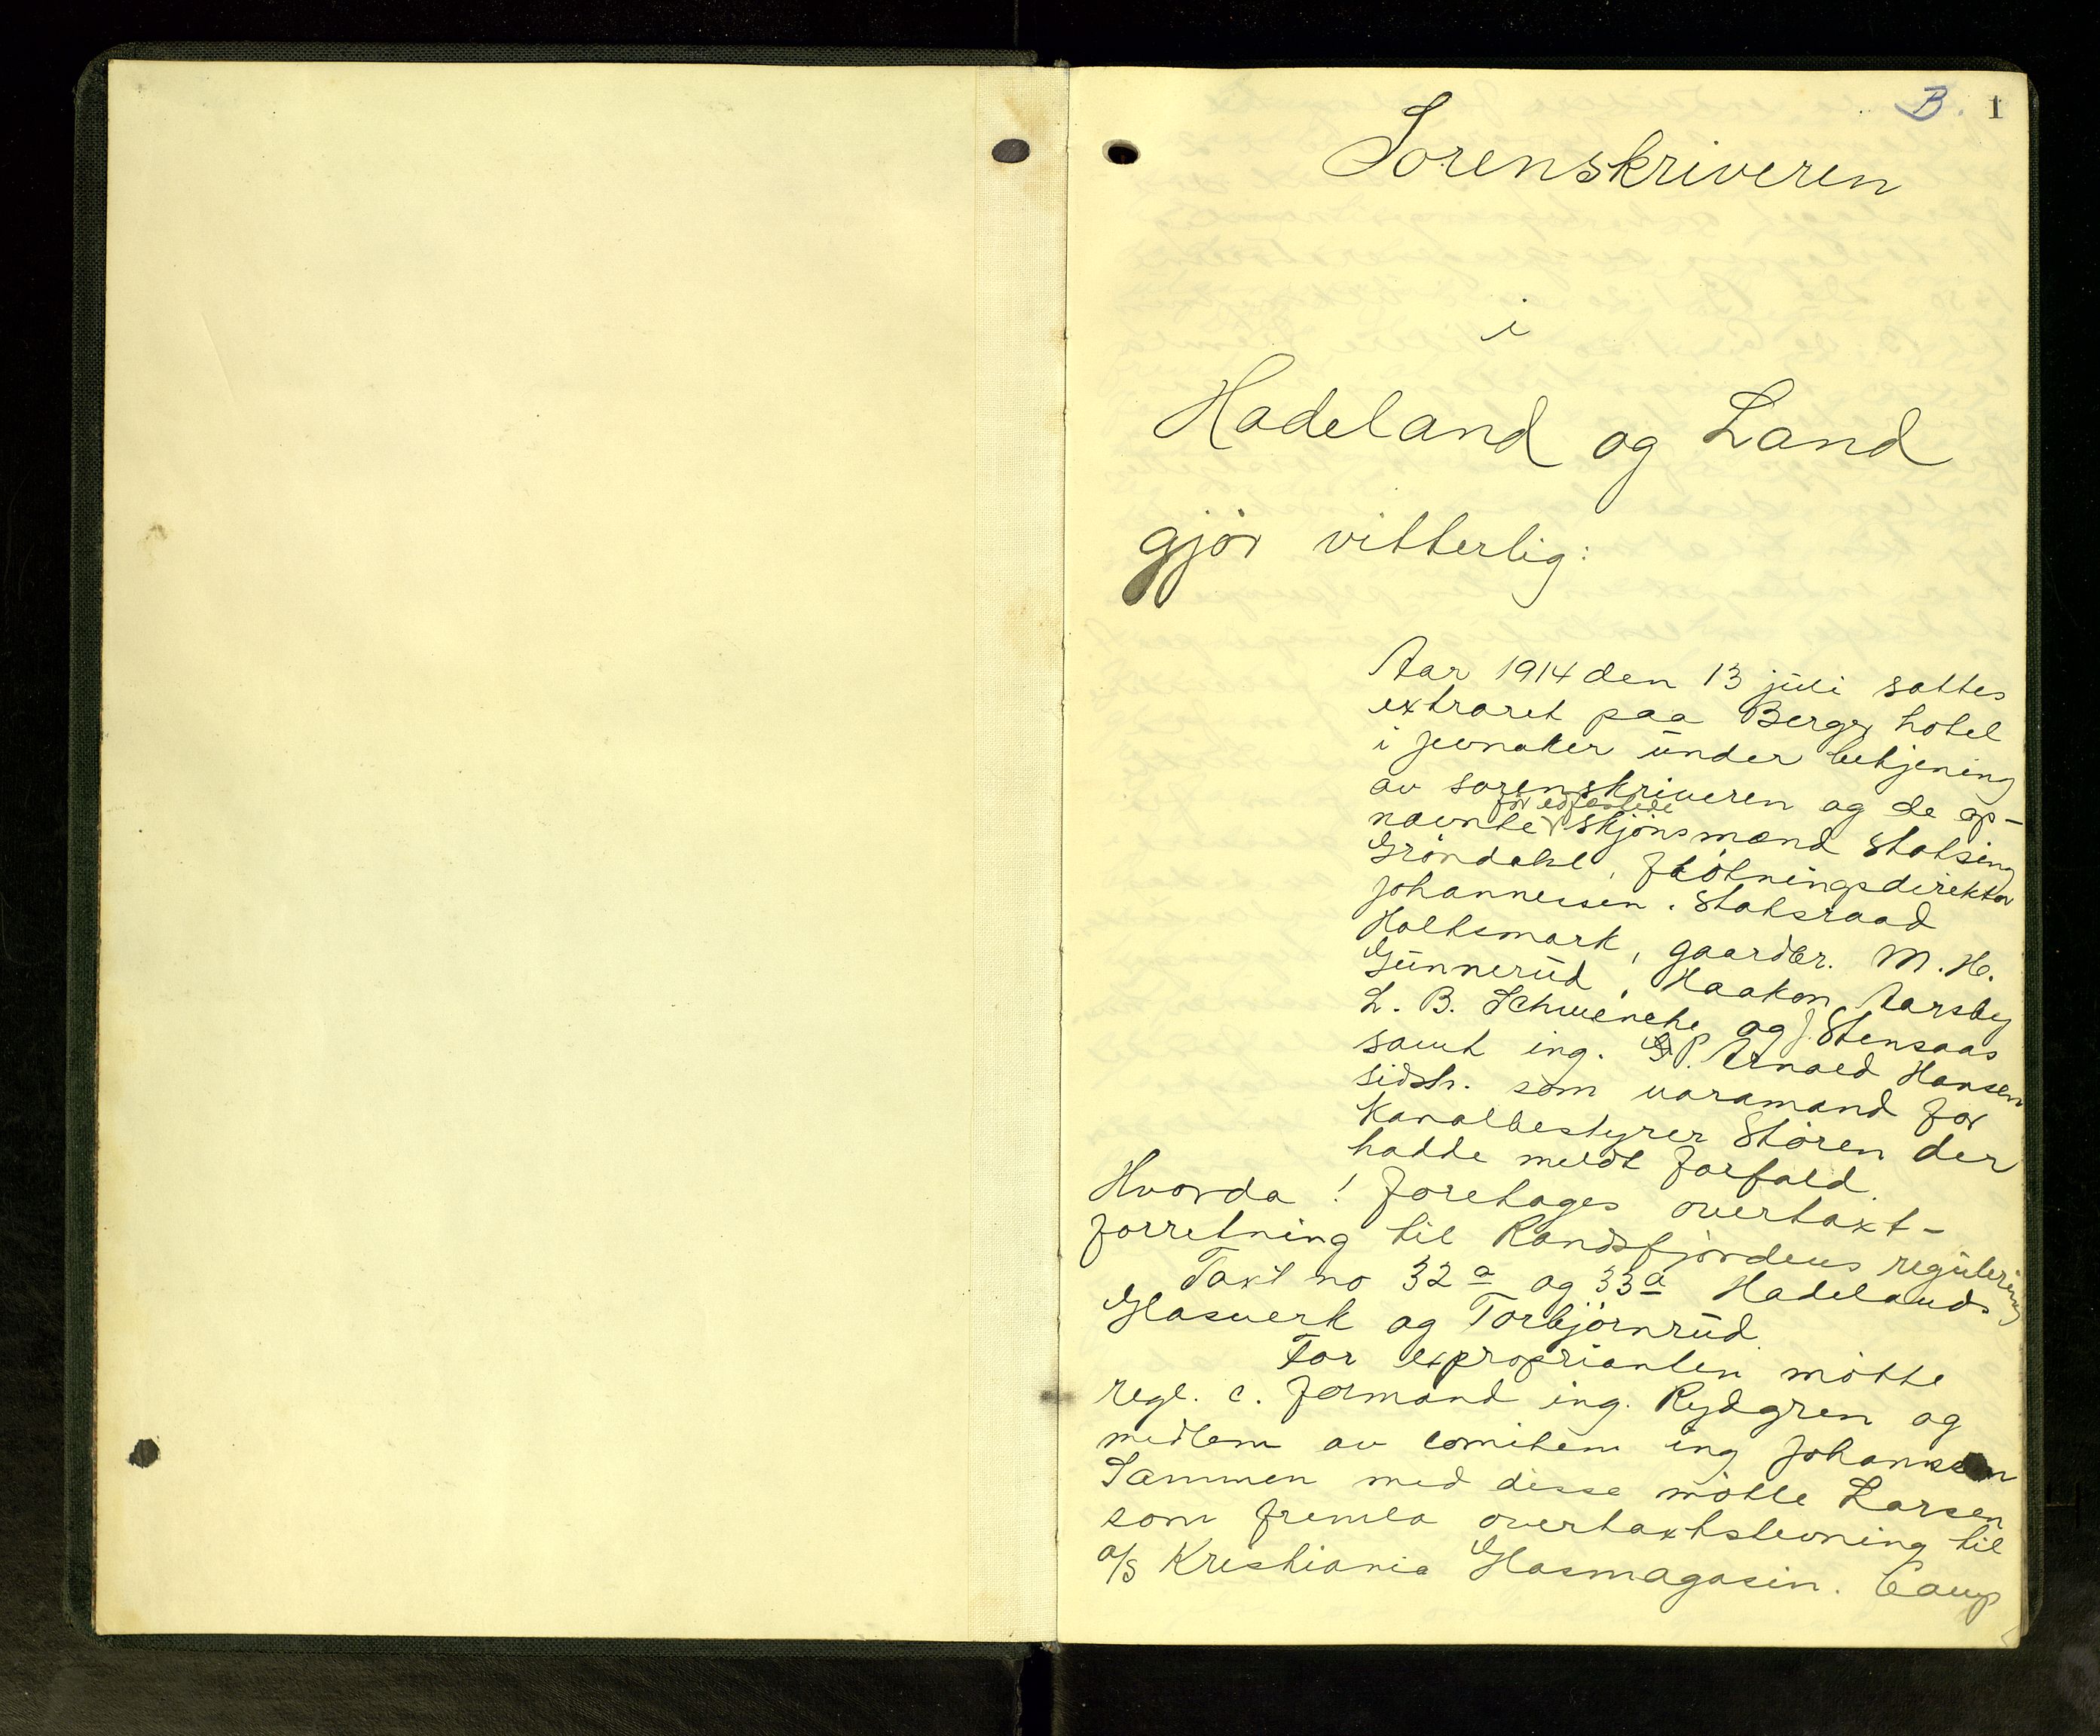 B. 1
Sorenskriveren
i
Hadeland og Land
gjör vitterlig:
Aar 1914 den 13 juli sattes
extraret paa Bergs hotel
i Jevnaker under betjening
av sorenskriveren og de op-
før edfæstede
nævnte skjönsmænd Statsing
Gröndahl, Flötningsdirektör
Johannessen. Statsraad
Holtsmark, gaardbr. M. H.
Gunnerud, Haakon Aarsby
L. B. Schwencke og J. Stensaas
samt ing. P. Arnold Hansen
sidstn. som varamand for
Kanalbestyrer Stören der
hadde meldt forfald.
Hvorda! foretages overtaxt-
forretning til Randsfjordens regulering
Taxt no 32 a og 33 a Hadelands
Glasverk og Torbjörnrud.
For exproprianten mötte
regl. c. formand ing. Rydgren og
medlem av comiteen ing Johansen
Sammen med disse mötte Larsen
som fremla overtaxtstevning til
a/s Kristiania Glasmagasin. Camp